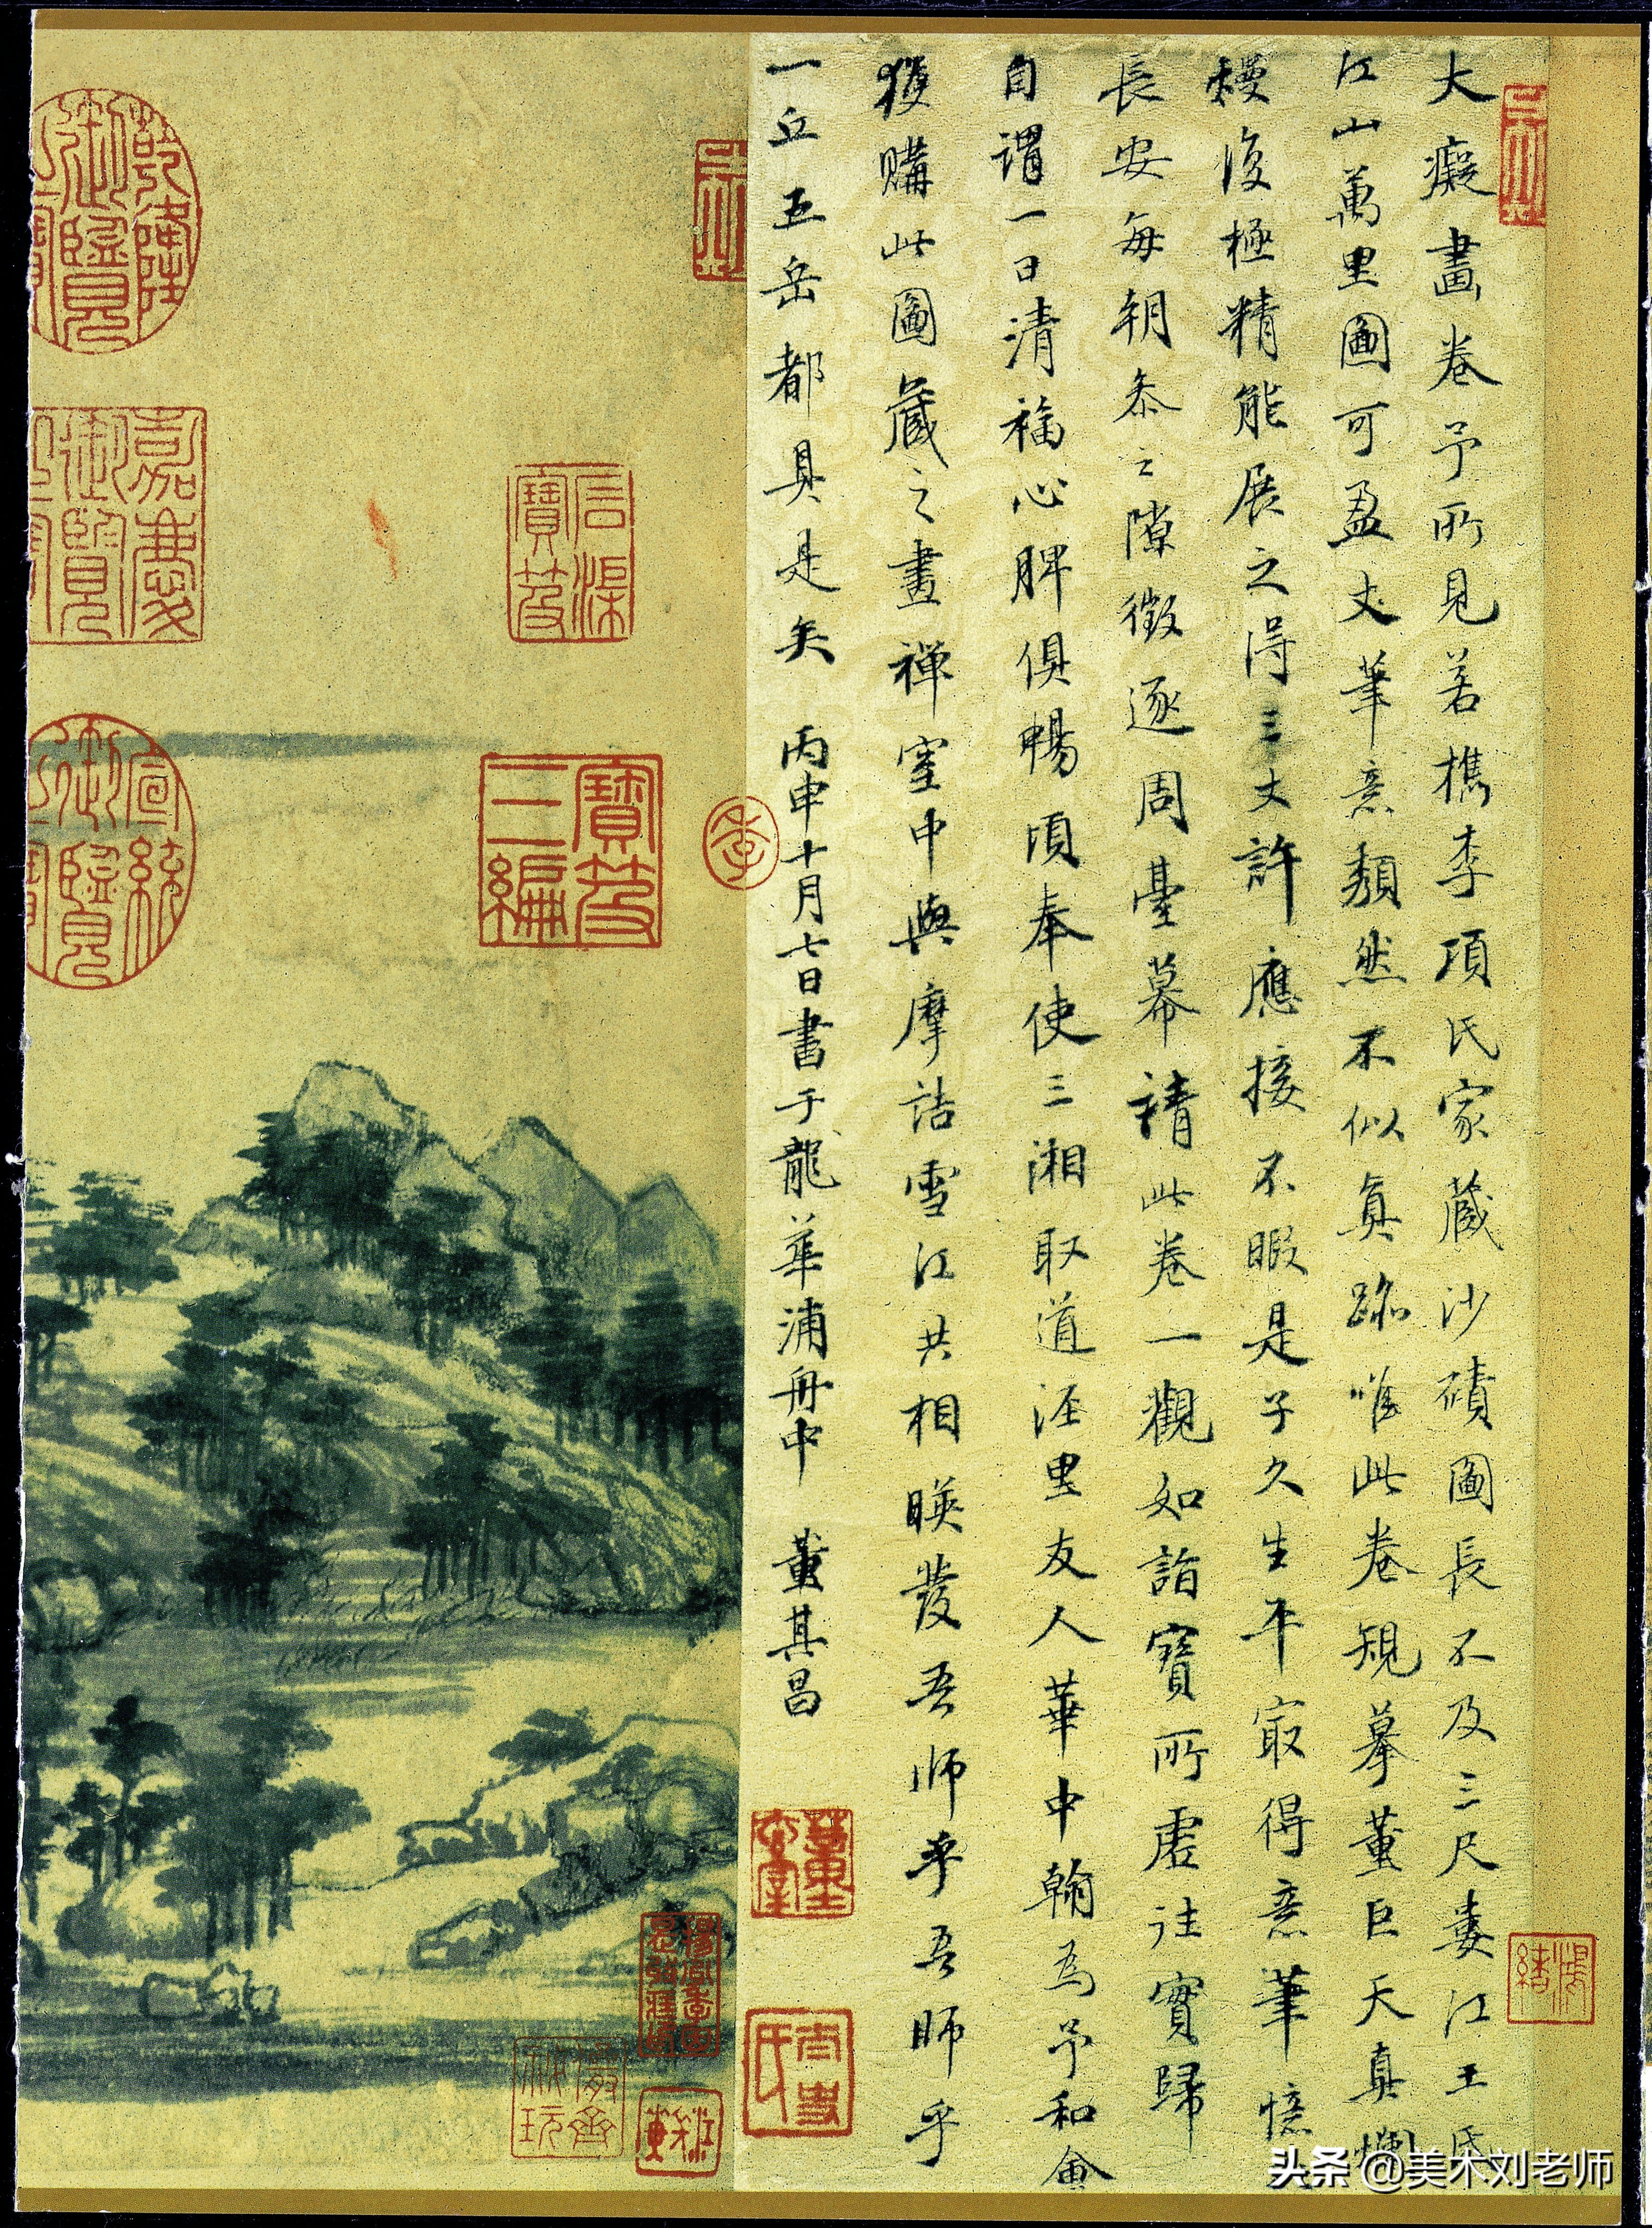 大癡畫卷予所見若檇李項氏家藏沙磧圖長不及三尺婁江王氏
江山萬里圖可盈丈筆意頹然不似真跡唯此卷規摹董巨天真爛
熳復極精能展之得三丈許應接不暇是子久生平冣得意筆憶
長安每朝參之隙徵逐周臺幕請此卷一觀如詣寶所虛往實歸
自謂一日清福心脾俱暢頃奉使三湘取道涇里友人華中翰為予和會
獲購此圖藏之畫禪室中與摩詰雪江共相暎發吾師乎吾師乎
一丘五岳都具是矣 丙申十月七日書于龍華浦舟中 董其昌
鴻緒
太史氏
季
石渠寶笈
寶笈三編
儼齋秘玩
嘉慶御覽
宣統御覽
头条 @美术刘老师